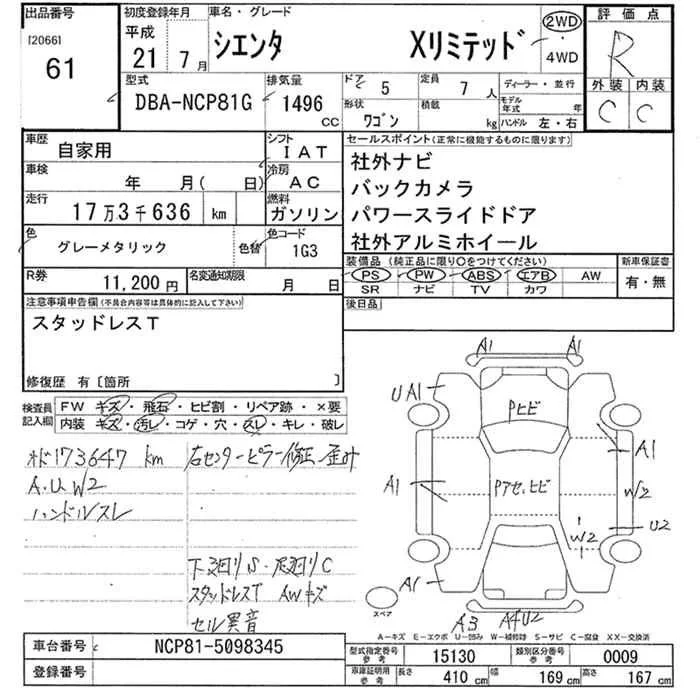 出品番号
[2066]
61
初度登録年月
平成
21 7月
車名・グレード
シエンタ Xリミテッド
2WD
・
4WD
評価点
R
外装 内装
C C
型式
DBA-NCP81G
排気量
1496
CC
ドア
5
定員
7人
形状
ワゴン
積載
kg
ディーラー・並行
モデル年式 年
ハンドル 左・右
車歴
自家用
シフト
IAT
車検
年 月( 日)
冷房
AC
走行
17万3千636 km
燃料
ガソリン
色
グレーメタリック
色替
色コード
1G3
R券
11,200円
名変通知期限
月 日
セールスポイント(正常に機能するものに限ります)
社外ナビ
バックカメラ
パワースライドドア
社外アルミホイール
装備品(純正品に限り○をつけてください)
PS PW ABS エアB AW
SR ナビ TV カワ
新車保証書
有・無
後日品
注意事項申告欄(不具合内容等は具体的に記入して下さい)
スタッドレスT
修復歴 有〔箇所 〕
検査員記入欄
FW キズ・飛石・ヒビ割・リペア跡・×要
内装 キズ・汚レ・コゲ・穴・スレ・キレ・破レ
オド173647 km
A.U.W2
ハンドルスレ
右センターピラー修正、歪み
下廻りS・足廻りC
スタッドレスT AWキズ
セル異音
A1 A1
UA1
Pヒビ
A1
A1
Pアセ、ヒビ
W2
U2
W2
A1
スペア
A3 A4U2
A-キズ E-エクボ U-凹み W-補修跡 S-サビ C-腐食 XX-交換済
車台番号
NCP81-5098345
登録番号
型式指定番号
参考
15130
類別区分番号
参考
0009
車庫証明用
参考
長さ
410 cm
幅
169 cm
高さ
167 cm